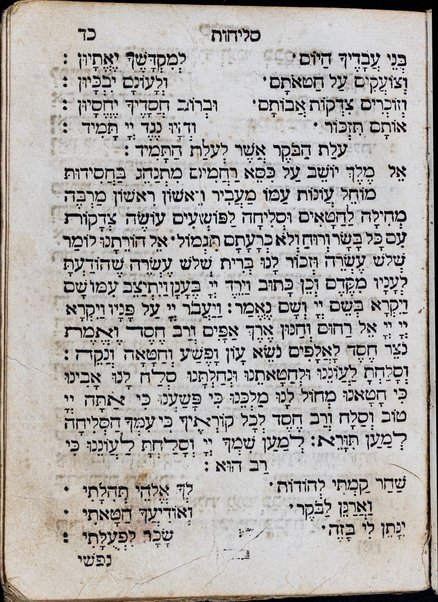 סליחות כד
בְּנֵי עֲבָדֶיךָ הַיּוֹם׳ לְמִקְדָּשְׁךָ יֶאֱתָיוּן :
וְצוֹעֲקִים עַל חַטֹּאתָם׳ וְלַעֲוֹנָם יִבְכָּיוּן :
וְזוֹכְרִים צִדְקוֹת אֲבוֹתָם׳ וּבְרוֹב חֲסָדֶיךָ יֶחֱסָיוּן :
אוֹתָם תִּזְכּוֹר׳ וְדָּזוּ נֶגֶד יְיָ תָּמִיד :
עֹלַת הַבֹּקֶר אֲשֶׁר לְעֹלַת הַתָּמִיד :
אֵל מֶלֶךְ יוֹשֵׁב עַל כִּסֵּא רַחֲמִים מִתְנַהֵג בַּחֲסִידוּת
מוֹחֵל עֲוֹנוֹת עַמּוֹ מַעֲבִיר רִאשׁוֹן רִאשׁוֹן מַרְבֶּה
מְחִילָה לַחַטָּאִים וּסְלִיחָה לַפּוֹשְׁעִים עוֹשֶׂה צְדָקוֹת
עִם כָּל בָּשָׂר וְרוּחַ וְלֹא כְרָעָתָם תִּגְמוֹל׳ אֵל הוֹרֵתָנוּ לוֹמַר
שְׁלֹשׁ עֶשְׂרֵה וּזְכוֹר לָנוּ בְּרִית שְׁלֹשׁ עֶשְׂרֵה שֶׁהוֹדַעְתָּ
לְעָנָיו מִקֶּדֶם וְכֵן כָּתוּב וַיֵּרֶד יְיָ בֶּעָנָן וַיִּתְיַצֵּב עִמּוֹ שָׁם
וַיִּקְרָא בְּשֵׁם יְיָ וְשָׁם נֶאֱמַר: וַיַּעֲבֹר יְיָ עַל פָּנָיו וַיִּקְרָא
יְיָ יְיָ אֵל רַחוּם וְחַנּוּן אֶרֶךְ אַפַּיִם וְרַב חֶסֶד וֶאֱמֶת
נֹצֵר חֶסֶד לָאֲלָפִים נֹשֵׂא עָוֹן וָפֶשַׁע וְחַטָּאָה וְנַקֵּה:
וְסָלַחְתָּ לַעֲוֹנֵנוּ וּלְחַטָּאתֵנוּ וּנְחַלְתָּנוּ סְלַח לָנוּ אָבִינוּ
כִּי חָטָאנוּ מְחוֹל לָנוּ מַלְכֵּנוּ כִּי פָשָׁעְנוּ כִּי אַתָּה יְיָ
טוֹב וְסַלָּח וְרַב חֶסֶד לְכָל קוֹרְאֶיךָ כִּי עִמְּךָ הַסְּלִיחָה
לְמַעַן תִּוָּרֵא: לְמַעַן שִׁמְךָ יְיָ וְסָלַחְתָּ לַעֲוֹנֵנוּ כִּי
רַב הוּא :
שַׁחַר קַמְתִּי לְהוֹדוֹת׳ לְךָ אֱלֹהֵי תְּהִלָּתִי :
וַאֲרַנֵּן לַבֹּקֶר׳ וְאוֹדִיעֲךָ חַטָּאתִי :
יִנָּתֵן לִי בָּזֶה׳ שָׂכָר לִפְעֻלָּתִי :
נַפְשִׁי